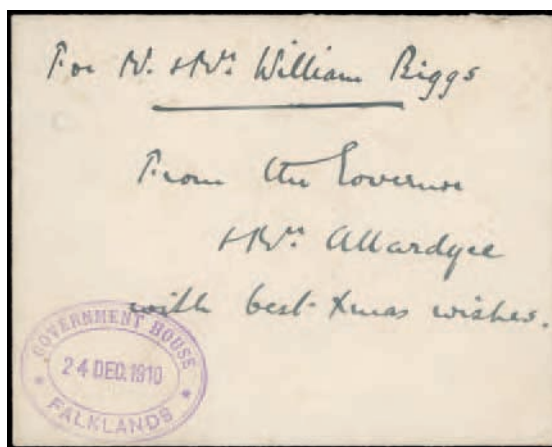 For Mr. & Mrs. William Biggs
From the Governor
& Mrs. Allardyce
with best Xmas wishes.
GOVERNMENT HOUSE
24 DEC. 1910
FALKLANDS